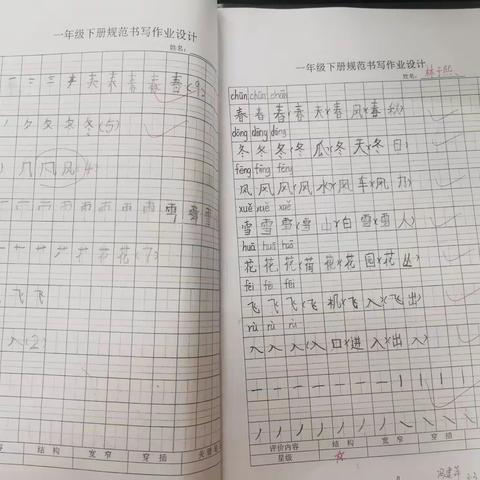 一年级下册规范书写作业设计
姓名:
春(9)
冬(5)
几 风 风(4)
雪 雪 雪
花 花 花(7)
飞 飞
入(2)
结构 宽窄 穿插
一年级下册规范书写作业设计
姓名:
chūn chūn chūn
春 春 春(春天)(春风)(春秋)
dōng dōng dōng
冬 冬 冬(冬瓜)(冬天)(冬日)
fēng fēng fēng
风 风 风(风水)(风车)(风力)
xuě xuě xuě
雪 雪 雪(雪山)(白雪)(雪人)
huā huā huā
花 花 花(荷花)(花园)(花丛)
fēi fēi fēi
飞 飞 飞(飞机)(飞入)(飞出)
rù rù rù
入 入 入(入口)(进入)(出入)
评价内容 结构 宽窄 穿插
星级